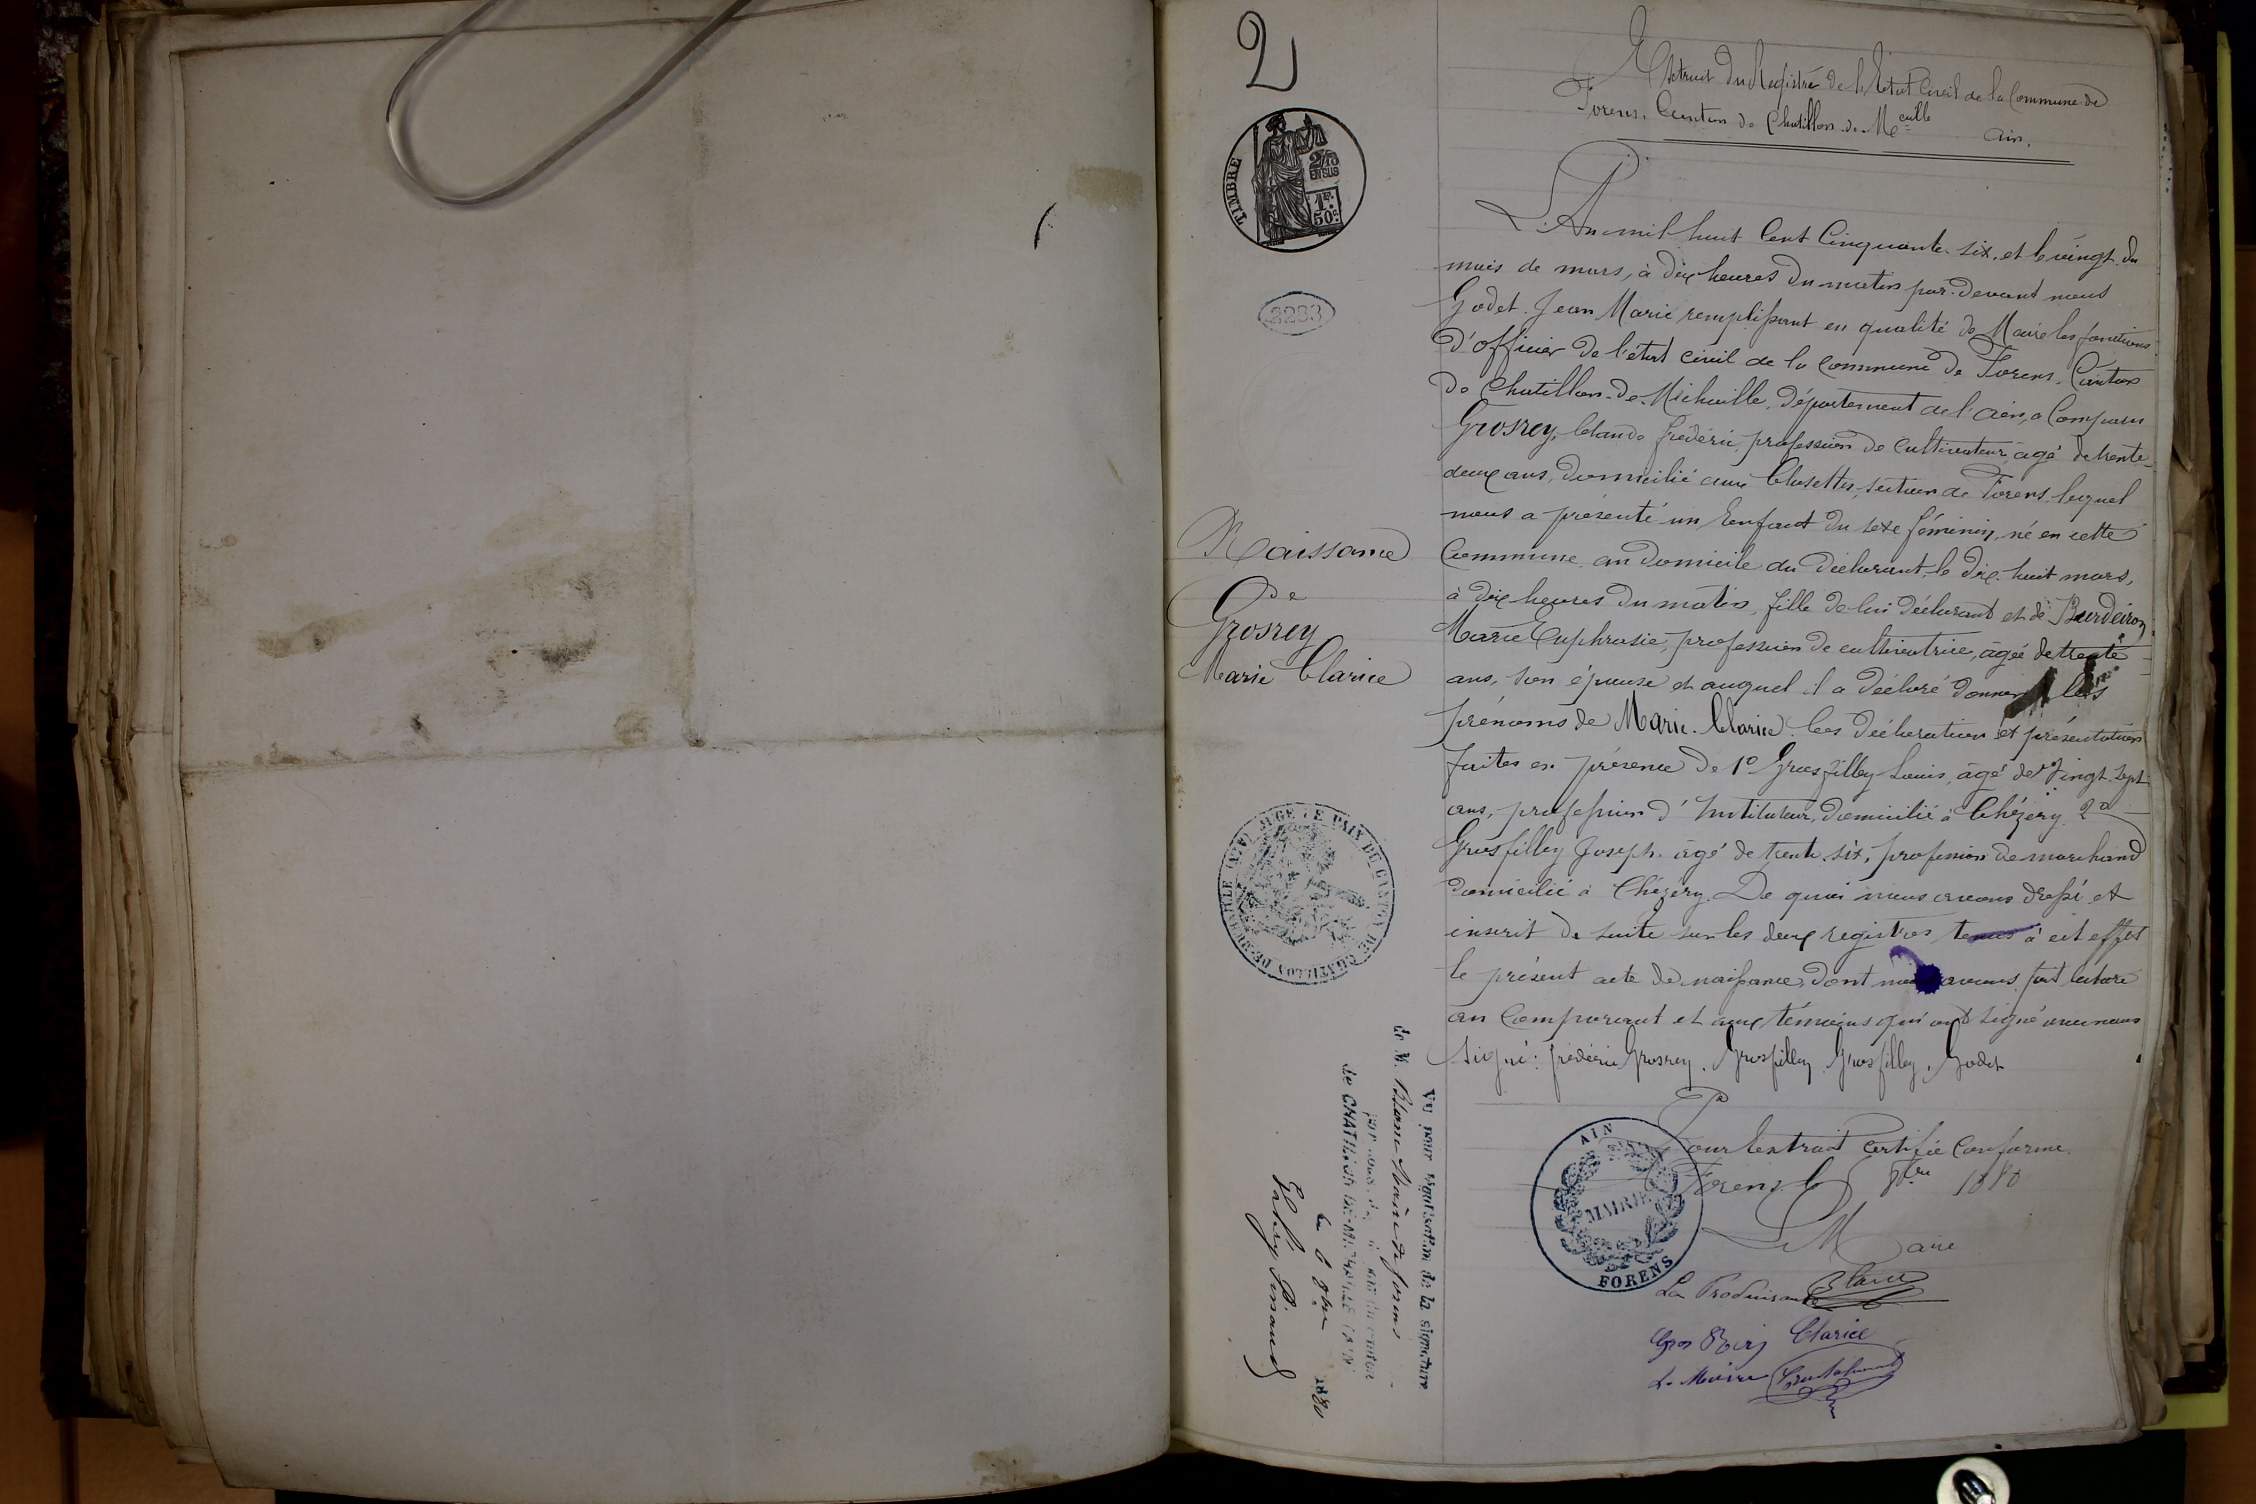 2
Extrait du Registre de l'Etat Civil de la Commune de
Forens. Canton de Chatillon-de-Mcaille Ain.
TIMBRE
2/10
EN SUS
1F.
50c.
3283
L'An mil huit Cent Cinquante-six, et le vingt du
mois de mars, à dix heures du matin par-devant nous
Godet Jean Marie remplissant en qualité de Maire les fonctions
d'officier de l'état civil de la Commune de Forens, Canton
de Chatillon-de-Michaille, département de l'Ain, a Comparu
Grosrey, Claude frédéric, profession de Cultivateur âgé de trente-
deux ans, domicilié aux Closettes, section de Forens, lequel
nous a présenté un Enfant du sexe féminin, né en cette
Commune au domicile du déclarant, le dix-huit mars,
à dix heures du matin, fille de lui déclarant et de Burdeiron
Marie Euphrasie, profession de cultivatrice, âgée de trente
ans, son épouse et auquel il a déclaré donner les
prénoms de Marie-Clarice. Ces déclaration et présentation
faites en présence de 1º Grosfilley Louis, âgé de Vingt-sept
ans, profession d'Instituteur, domicilié à Chézery 2º
Grosfilley Joseph âgé de trente-six, profession de marchand
domicilié à Chézery. De quoi nous avons dressé et
inscrit de suite sur les deux registres tenus à cet effet
le présent acte de naissance, dont nous avons fait lecture
au Comparant et aux témoins qui ont signé avec nous
Signé: frédéric Grosrey. Grosfilley Grosfilley. Godet
Naissance
de
Grosrey
Marie Clarice
JUGE DE PAIX DU CANTON DE CHATILLON DE MICHAILLE (AIN)
Vu pour légalisation de la signature
de M. Blanc Maire de forens
de CHATILLON-DE-MICHAILLE (AIN)
le 6 8bre 1880
Pour Extrait Certifié Conforme.
Forens le 5 8bre 1880
Le Maire
Blanc
AIN
MAIRIE
FORENS
La Produisante
Gros Reiy Clarice
Le Maire